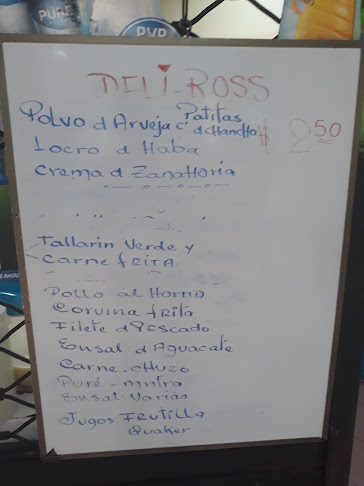 PURE
PVP
DELI-ROSS
Patitas
Polvo d Arveja c. d chancho $ 2.50
Locro d Haba
Crema d Zanahoria
Tallarin Verde y
Carne frita
Pollo al Horno
Corvina frita
Filete d Pescado
Ensal. d Aguacate
Carne-chuzo
Puré-mntra
Ensal. Varias
Jugos: Frutilla
Quaker